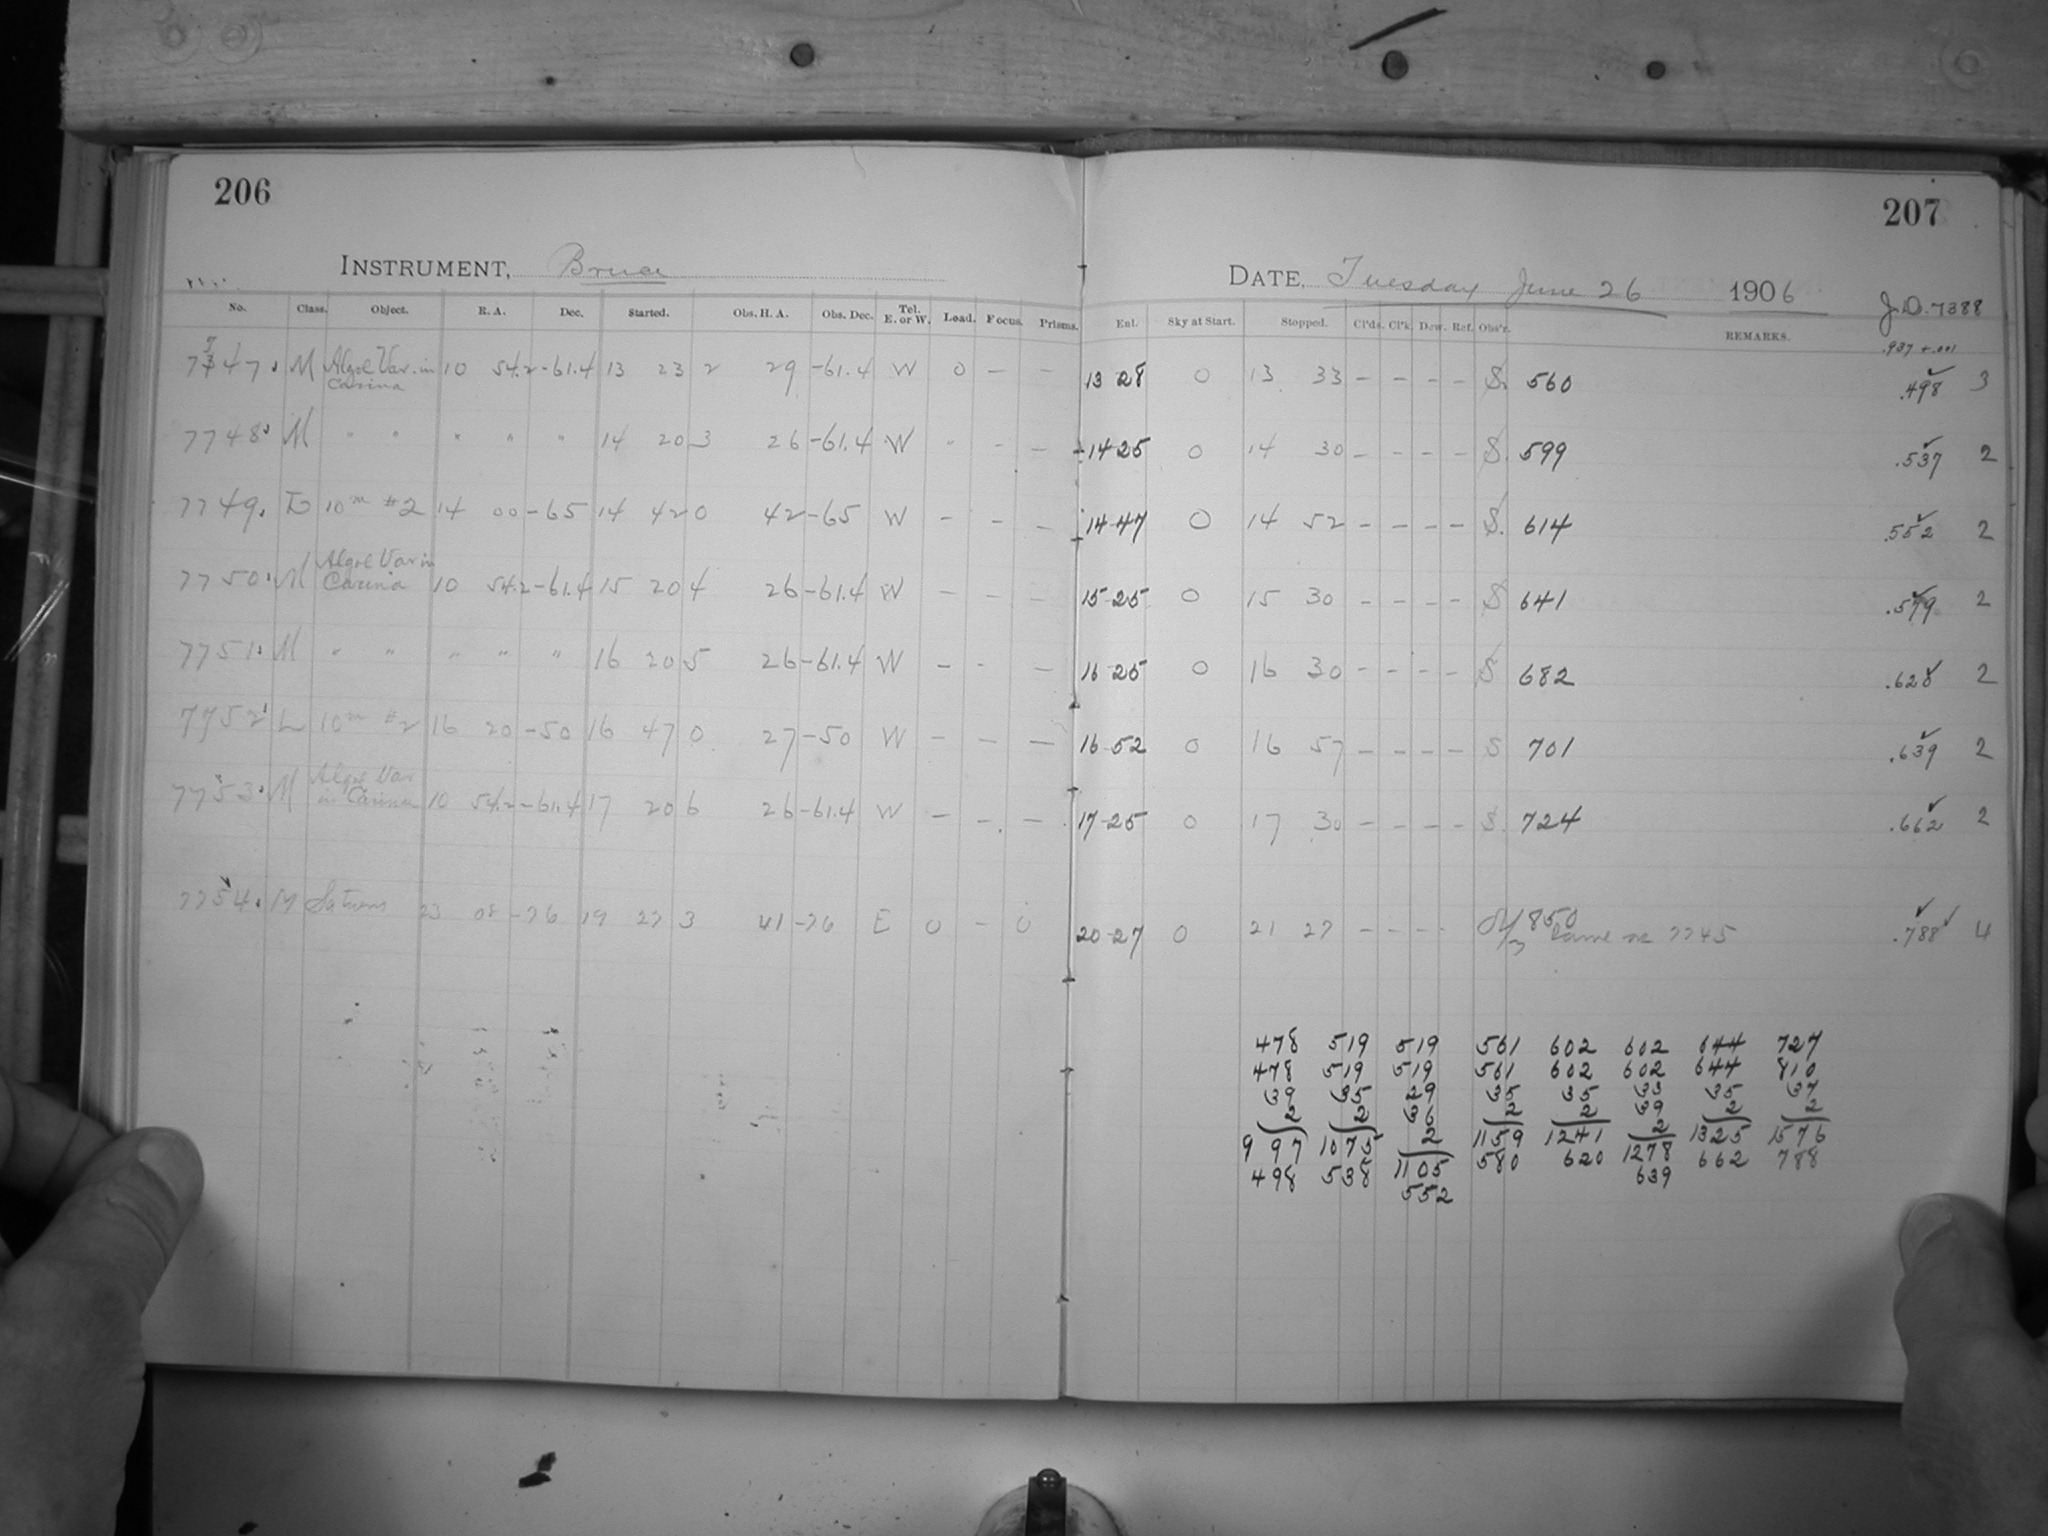 206
INSTRUMENT, Bruce
No. Class. Object. R. A. Dec. Started. Obs. H. A. Obs. Dec. Tel. E. or W. Load. Focus. Prisms.
7747. M Algol Var. in Carina 10 54.2 -61.4 13 23 2 29 -61.4 W 0 – –
7748. M " " " " " 14 20 3 26 -61.4 W " - –
7749. L 10m #2 14 00 -65 14 42 0 42 -65 W – – –
7750. M Algol Var in Carina 10 54.2 -61.4 15 20 4 26 -61.4 W – – –
7751. M " " " " " 16 20 5 26 -61.4 W – - –
7752. L 10m #2 16 20 -50 16 47 0 27 -50 W – – –
7753. M Algol Var in Carina 10 54.2 -61.4 17 20 6 26 -61.4 W – – –
7754. M Saturn 23 08 -76 19 27 3 41 -76 E 0 – 0
207
DATE, Tuesday June 26 1906
J.D. 7388
Ent. Sky at Start. Stopped. Cl'ds. Cl'k. Dew. Ref. Obs'r. REMARKS.
.937 + .001
13 28 0 13 33 – – – – S. 560 .498 3
14 25 0 14 30 – – – – S. 599 .537 2
14 47 0 14 52 – – – – S. 614 .552 2
15 25 0 15 30 – – – – S 641 .579 2
16 25 0 16 30 – – – – S 682 .628 2
16 52 0 16 57 – – – – S 701 .639 2
17 25 0 17 30 – – – – S. 724 .662 2
20 27 0 21 27 – – – – 850 Same as 7745 .788 4
478 519 519 561 602 602 644 727
478 519 519 561 602 602 644 810
39 35 29 35 35 33 35 37
2 2 36 2 2 39 2 2
997 1075 2 1159 1241 2 1325 1576
498 538 1105 580 620 1278 662 788
552 639